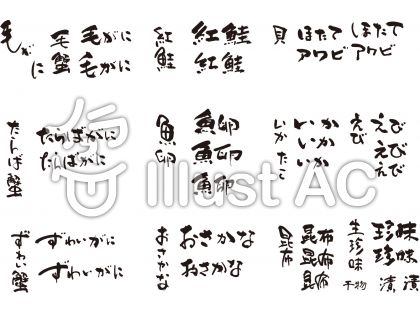 毛がに
毛蟹
毛がに
毛がに
紅鮭
紅鮭
紅鮭
貝
ほたて
アワビ
ほたて
アワビ
たらば蟹
たらばがに
たらばがに
魚卵
魚卵
魚卵
魚卵
いか
たこ
いか
いか
いか
えび
えび
えび
えび
ずわい蟹
ずわいがに
ずわいがに
おさかな
おさかな
おさかな
昆布
昆布
昆布
昆布
生珍味
干物
珍味
珍味
漬
漬
illust AC